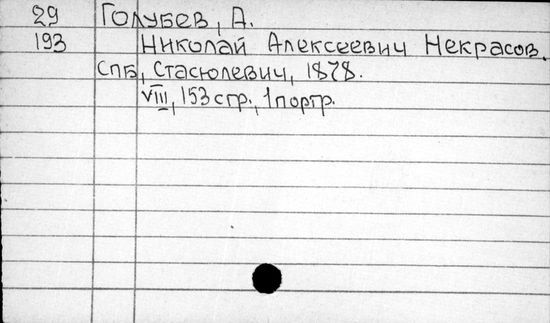 29 Голубев, А.
193 Николай Алексеевич Некрасов.
СПБ, Стасюлевич, 1878.
VIII, 153 стр., 1 портр.